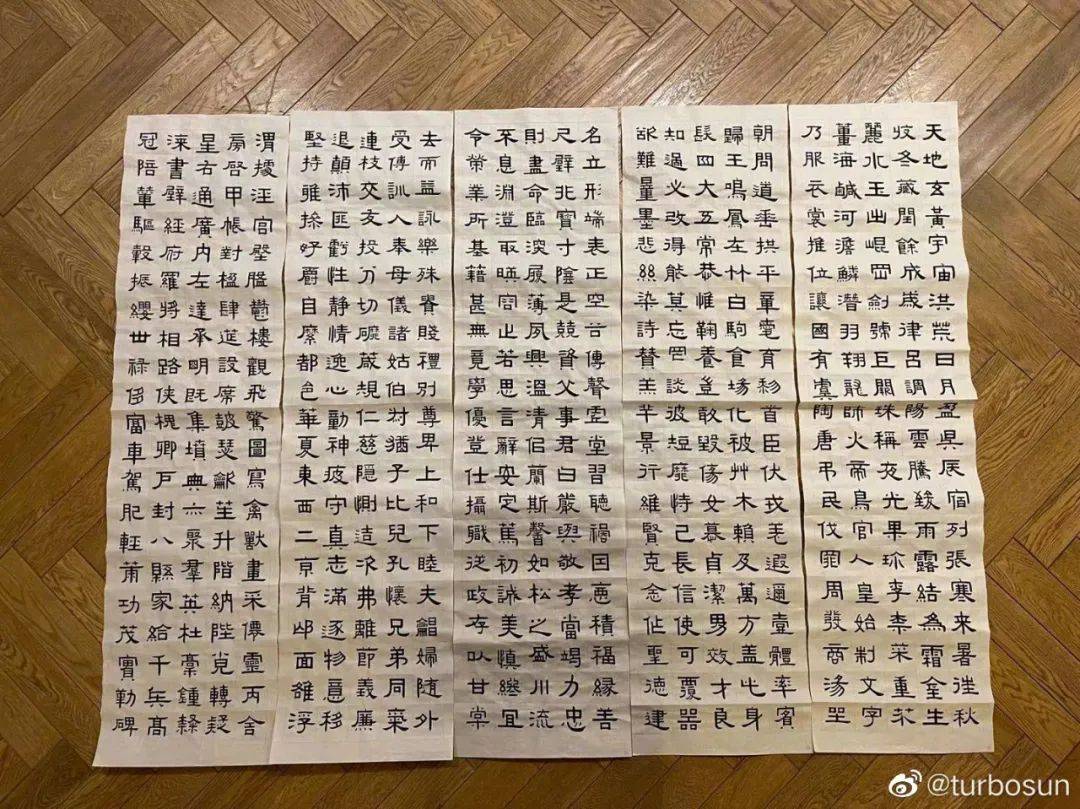 天地玄黃宇宙洪荒日月盈昃辰宿列張寒来暑往秋
收冬藏閏餘成歲律呂調陽雲騰致雨露結為霜金生
麗水玉出崐岡劍號巨闕珠稱夜光果珍李柰菜重芥
薑海鹹河澹鱗潛羽翔龍師火帝鳥官人皇始制文字
乃服衣裳推位讓國有虞陶唐弔民伐罪周發商湯坐
朝問道垂拱平章愛育黎首臣伏戎羌遐邇壹體率賓
歸王鳴鳳在竹白駒食場化被艸木賴及萬方蓋此身
髮四大五常恭惟鞠養豈敢毀傷女慕貞潔男效才良
知過必改得能莫忘罔談彼短靡恃己長信使可覆器
欲難量墨悲絲染詩賛羔羊景行維賢克念作聖德建
名立形端表正空谷傳聲虛堂習聽禍因惡積福縁善
尺璧非寶寸陰是競資父事君曰嚴與敬孝當竭力忠
則盡命臨深履薄夙興溫清佀蘭斯馨如松之盛川流
不息淵澄取暎容止若思言辭安定篤初誠美慎終宜
令榮業所基藉甚無竟學優登仕攝職從政存以甘棠
去而益詠樂殊貴賤禮別尊卑上和下睦夫唱婦随外
受傅訓入奉母儀諸姑伯叔猶子比兒孔懷兄弟同氣
連枝交友投分切磨箴規仁慈隱惻造次弗離節義廉
退顛沛匪虧性静情逸心動神疲守真志滿逐物意移
堅持雅操好爵自縻都邑華夏東西二京背邙面雒浮
渭據涇宮殿盤鬱樓觀飛驚圖寫禽獸畫采僊靈丙舍
傍啓甲帳對楹肆筵設席鼓瑟龡笙升階納陛弁轉疑
星右通廣内左達承明既集墳典亦聚羣英杜稾鍾隸
漆書壁經府羅將相路俠槐卿戶封八縣家給千兵高
冠陪輦驅轂振纓世祿侈富車駕肥輕策功茂實勒碑
@turbosun